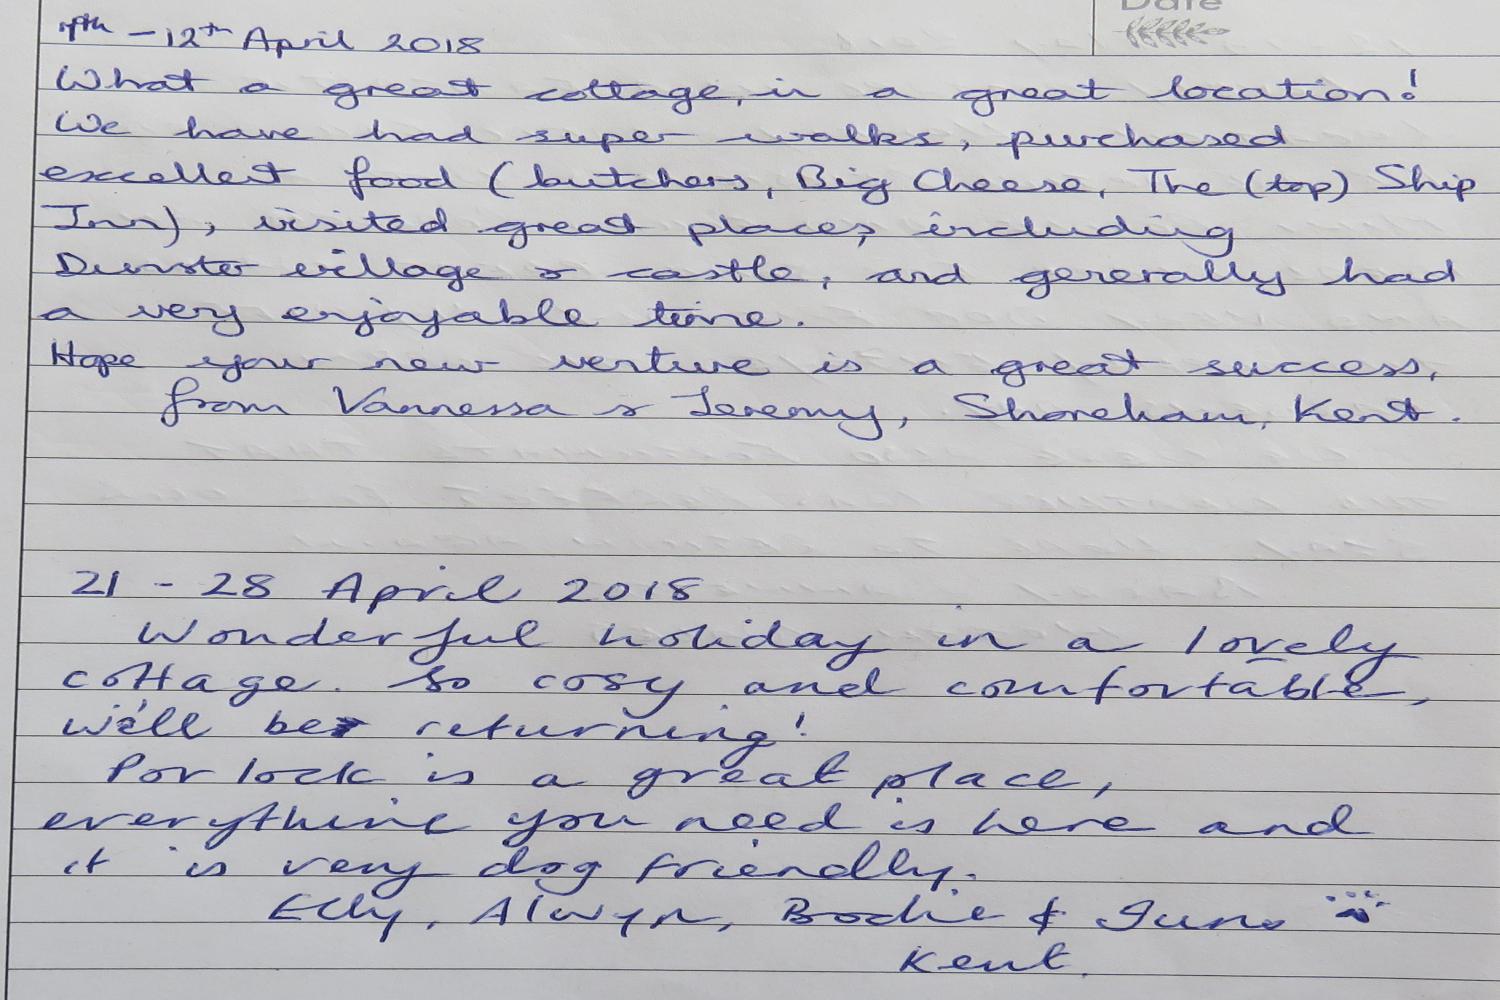 Date
7th - 12th April 2018
What a great cottage, in a great location!
We have had super walks, purchased
excellent food (butchers, Big Cheese, The (top) Ship
Inn), visited great places, including
Dunster village & castle, and generally had
a very enjoyable time.
Hope your new venture is a great success,
from Vannessa & Jeremy, Shoreham, Kent.
21 - 28 April 2018
Wonderful holiday in a lovely
cottage. So cosy and comfortable,
we'll be returning!
Porlock is a great place,
everything you need is here and
it is very dog friendly.
Elly, Alwyn, Bodie & Juno
Kent.